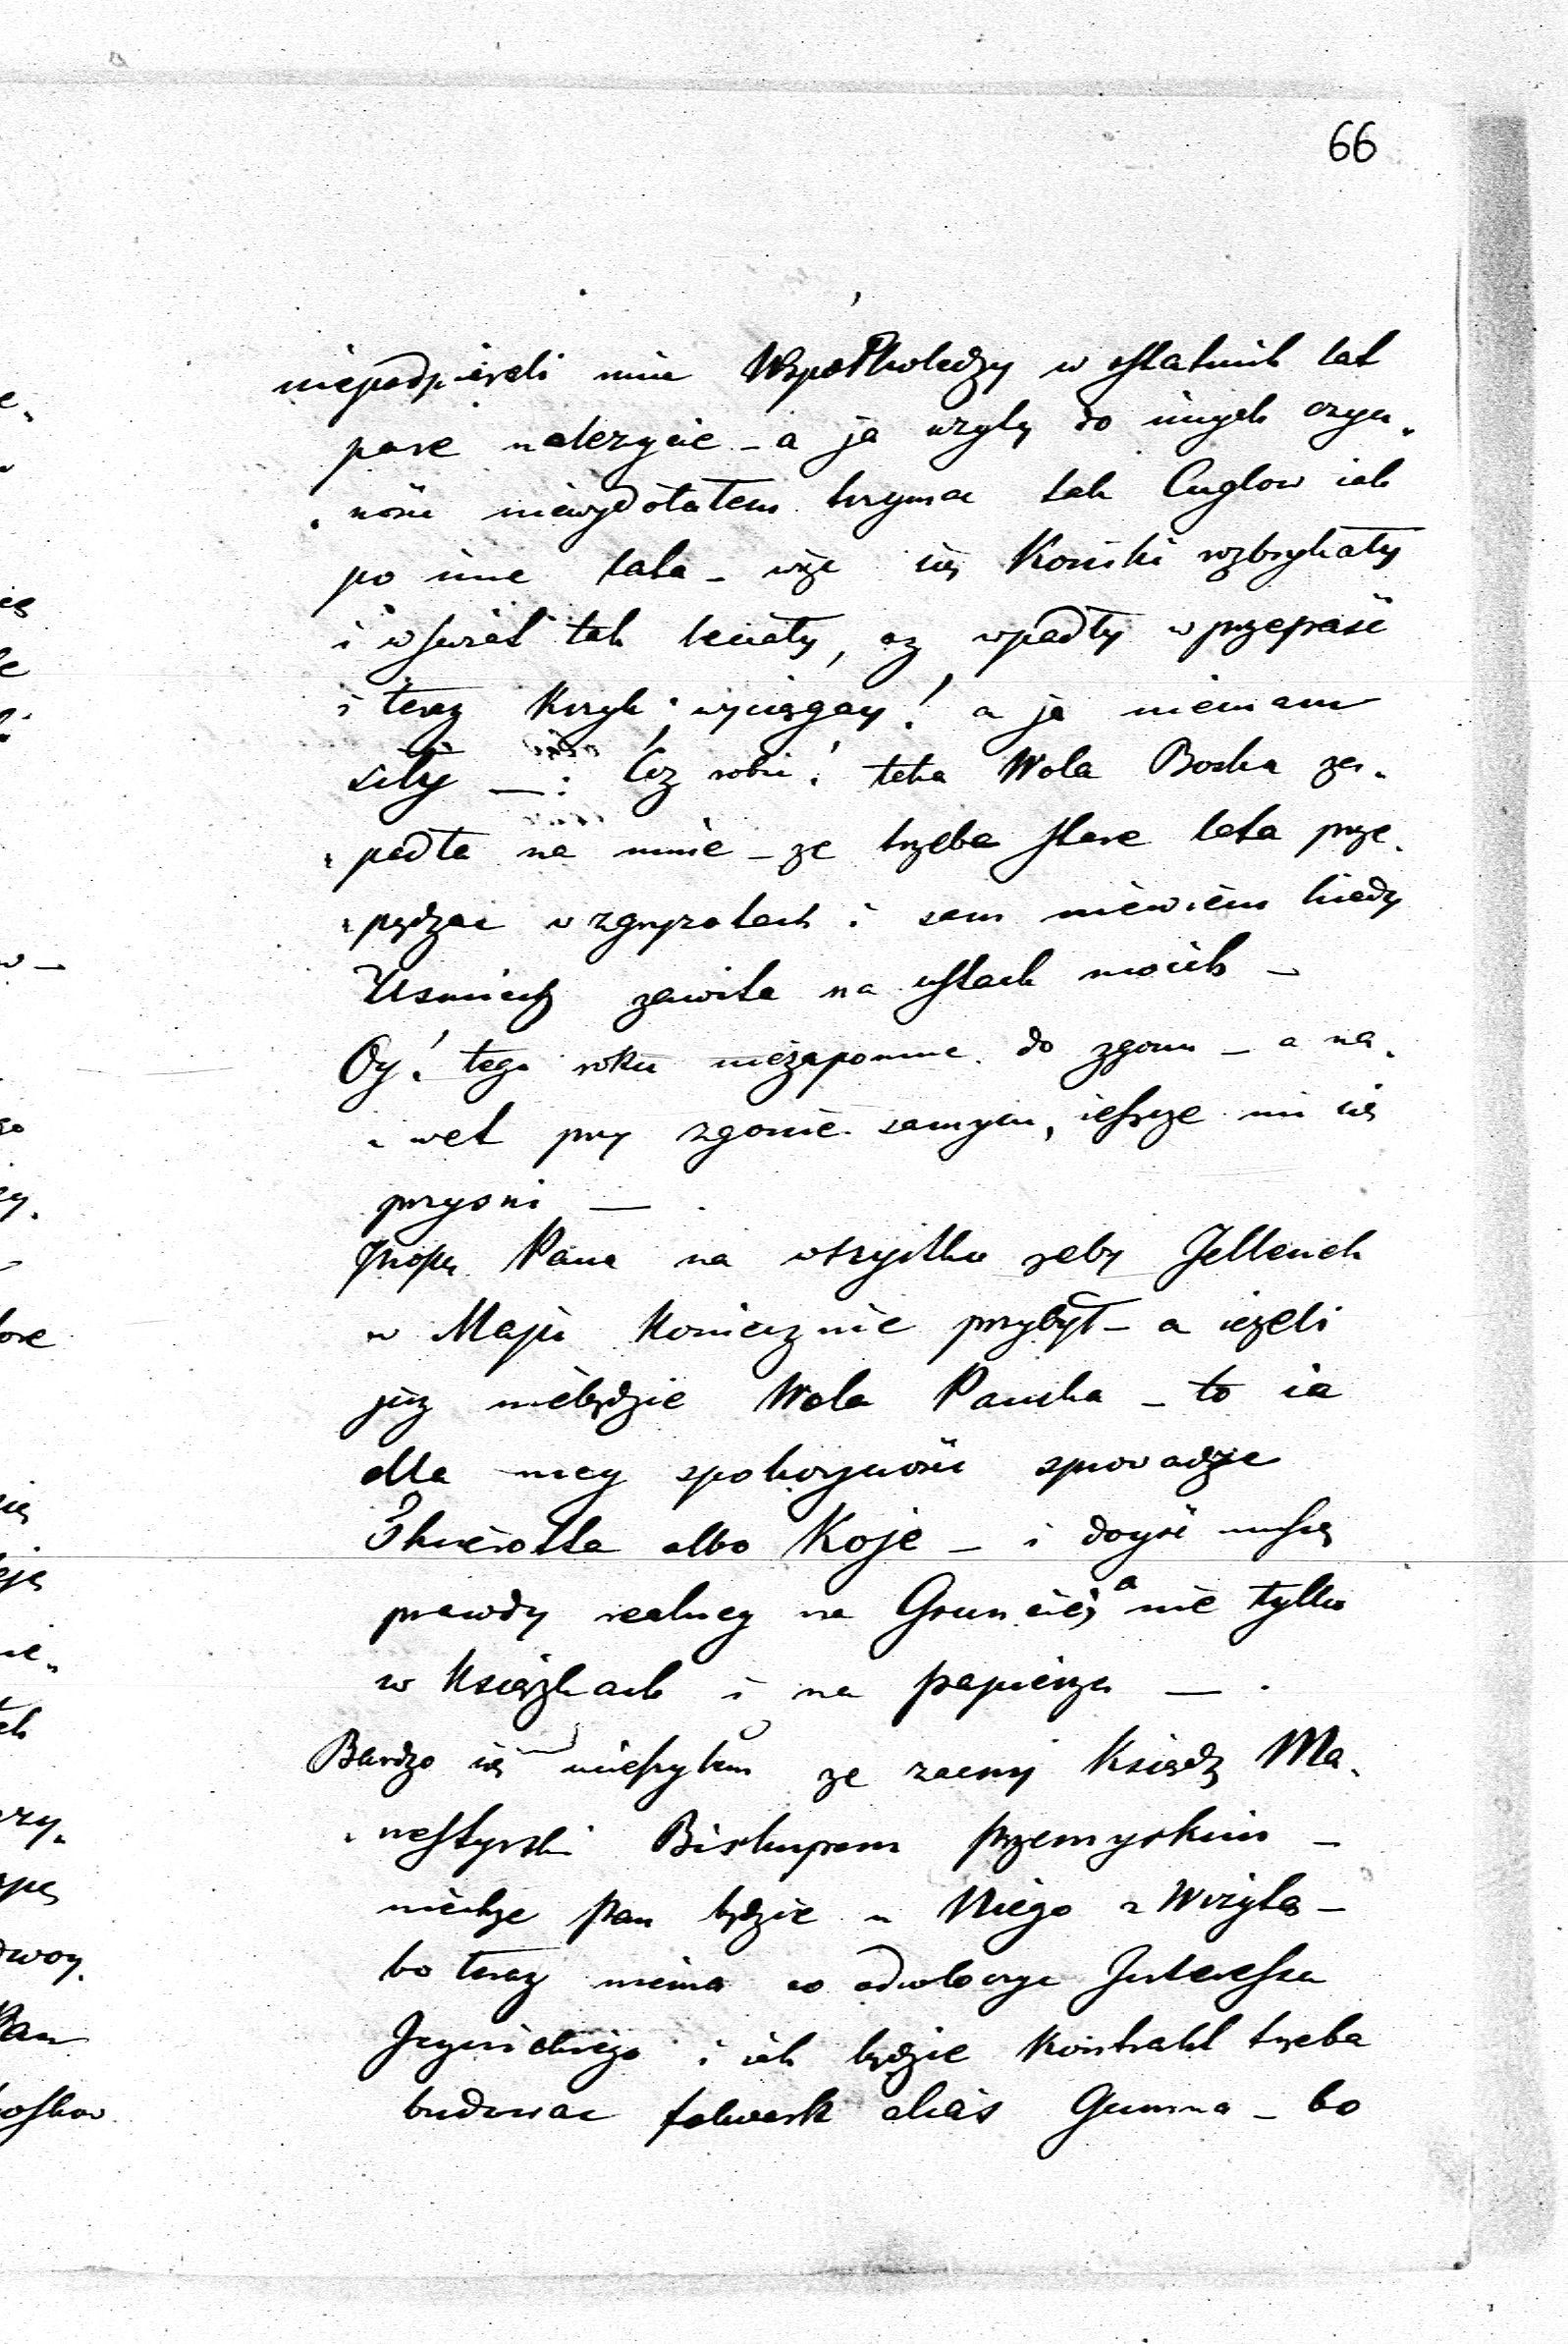 66
niepodpierali mie Wspołkoledzy w ostatnich lat
pare nalezycie – a ja uzyty do innych czyn„
„nosci niewydołałem trzymac tak Cuglow iak
po inne lata – więc się Koniki rozbrykały
i w swiat tak leciały, az wpadły w przepasć
i teraz Krzyk; wyciągay! a ja niemam
siły — : Coz robic! taka Wola Boska za„
„padła na mnie – ze trzeba stare lata prze„
„pędzac w zgryzotach i sam niewiem kiedy
Usmiech zawita na ustach moich –
Oy! tego roku niezapomne do zgonu – a na„
„wet przy zgonie samym, iessze mi się
przysni — .
Proszę Pana na wszystko zeby Jellenek
w Maju Koniecznie przybył – a iezeli
juz niebędzie Wola Panska – to ia
dla mey spokoynosci sprowadze
albo Koje – i doysć muszę
prawdy realney na Gruncie, a nie tylko
w Książkach i na papierze — .
Bardzo się ucieszyłem ze zacny Ksiądz Mo„
„nastyrski Biskupem przemyskim –
niechze Pan będzie u Niego z Wizytą –
bo teraz niema co odwłoczyc Interessu
i iak będzie Kontrakt trzeba
budowac folwark alias Gumna – bo